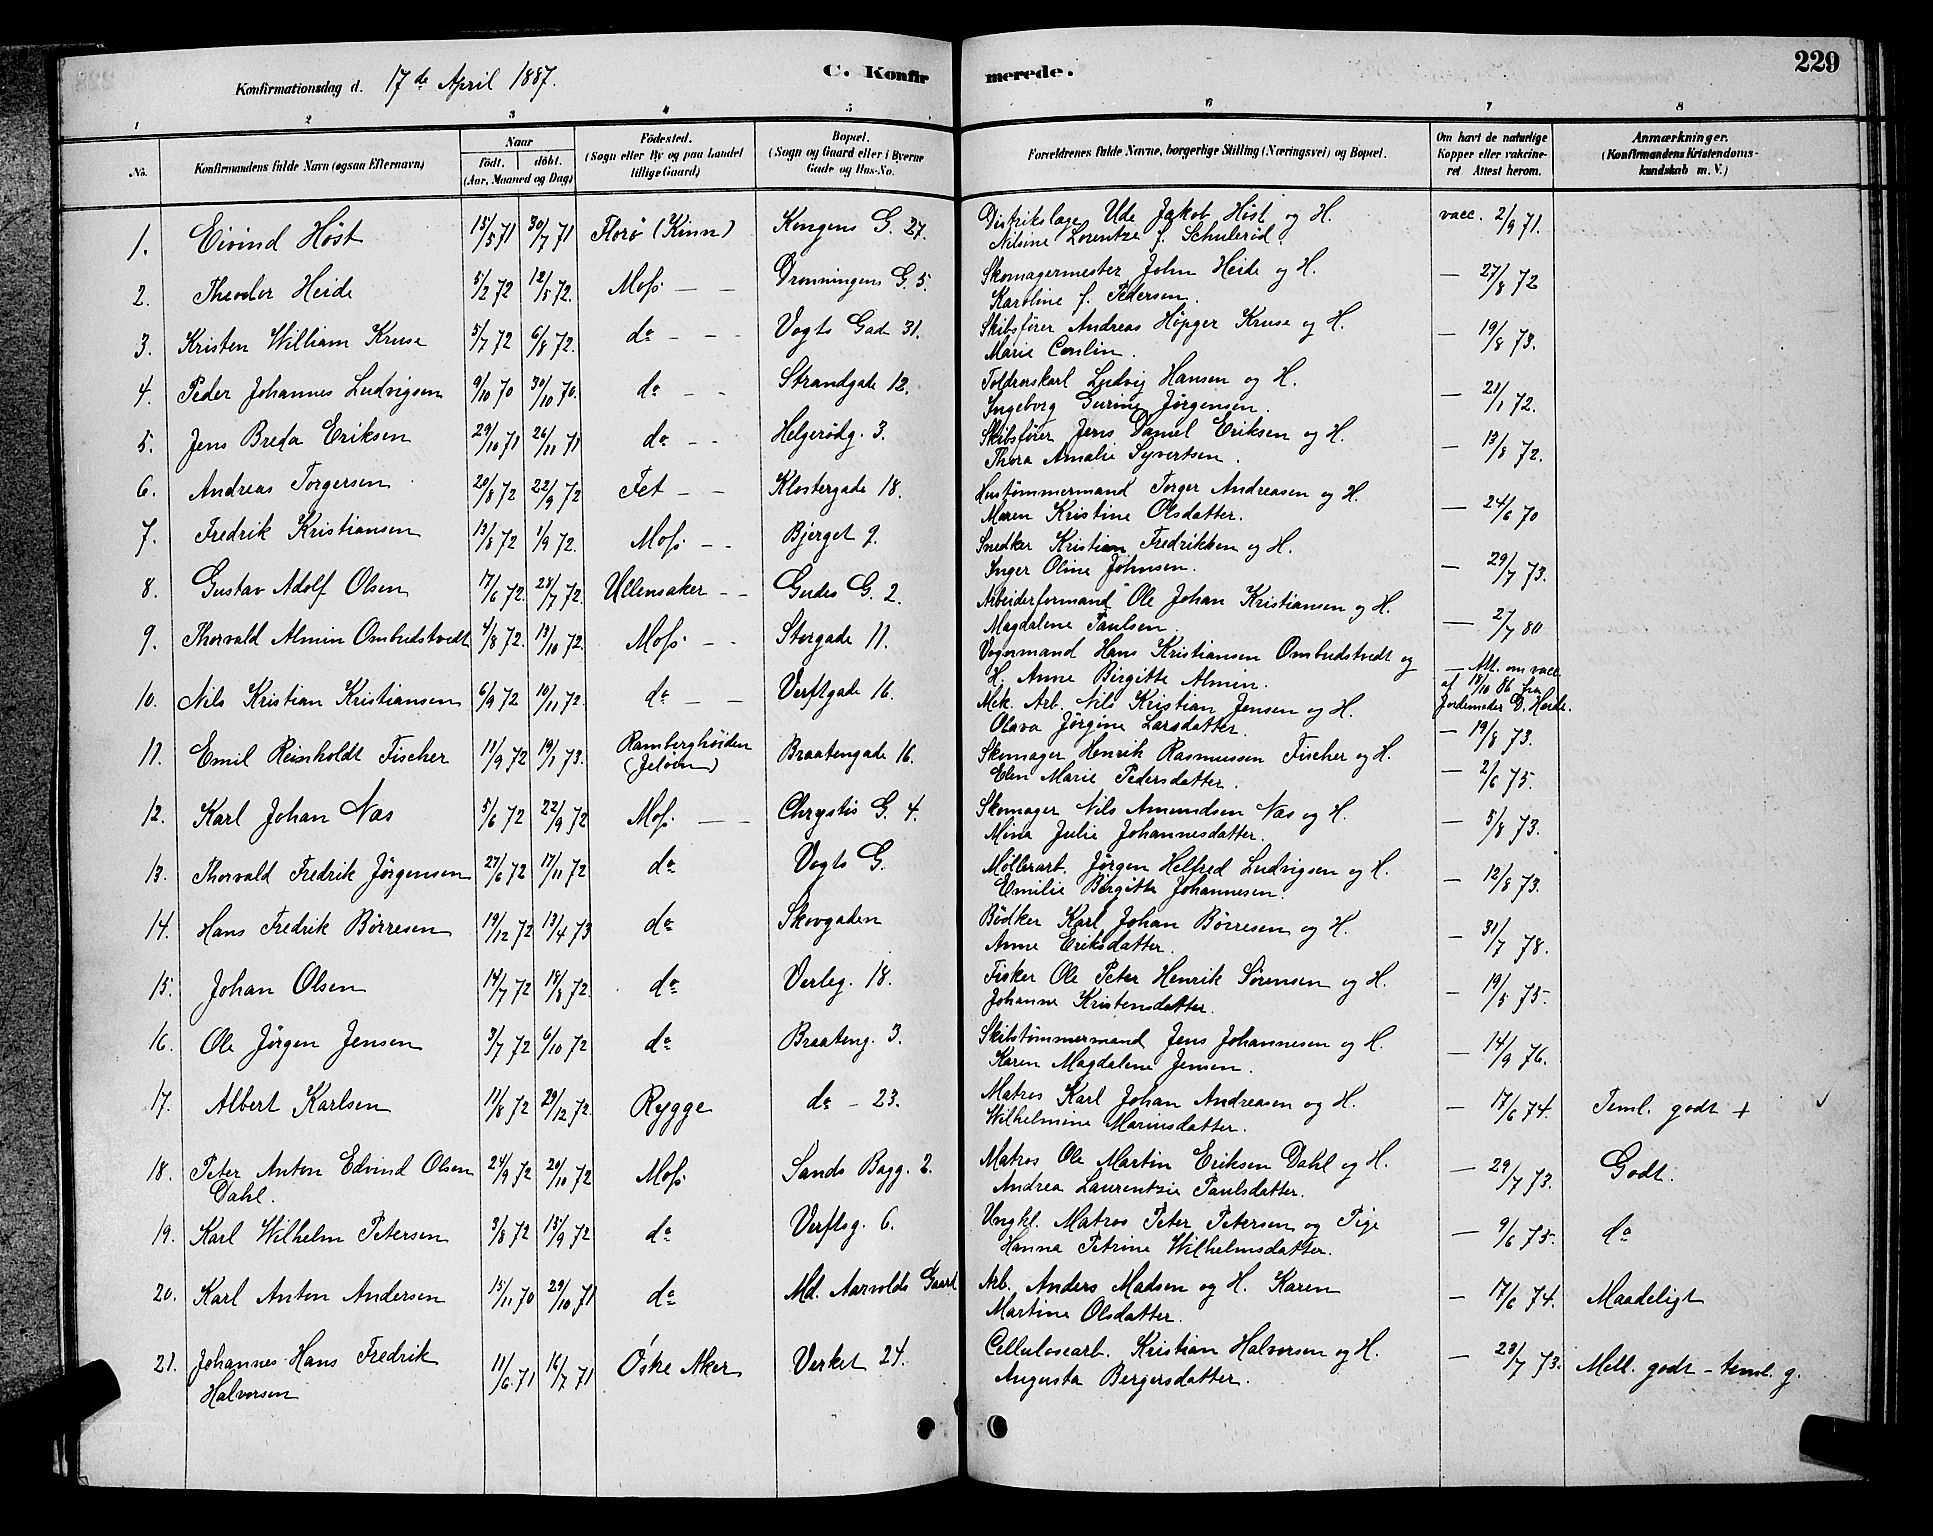 229
Konfirmationsdag d. 17de April 1887.
C. Konfirmerede.
1 2 3 4 5 6 7 8
No.
Konfirmandens fulde Navn (ogsaa Efternavn)
Naar
födt. döbt.
(Aar, Maaned og Dag)
Födested.
(Sogn eller By og paa Landet
tillige Gaard)
Bopæl.
(Sogn og Gaard eller i Byerne
Gade og Hus-No.
Forældrenes fulde Navne, borgerlige Stilling (Næringsvei) og Bopæl.
Om havt de naturlige
Kopper eller vakcine-
ret Attest herom.
Anmærkninger.
(Konfirmandens Kristendoms-
kundskab m. V.)
1. Eivind Höst 15/5 71 30/7 71 Florø (Kinn) Kongens G. 27. Distriktslæge Ude Jakob Höst og H. vacc. 2/9 71.
Nilsine Lorentze f. Schulerud.
2. Theodor Heide 5/2 72 12/5 72. Moss — — Dronningens G. 5. Skomagermester John Heide og H. — 27/8 72
Karoline f. Pedersen.
3. Kristen William Kruse 5/7 72 6/8 72. do - - Vogts Gad. 31. Skibsfører Andreas Höpger Kruse og H. — 19/8 73.
Marie Conlin.
4. Peder Johannes Ludvigsen 9/10 70 30/10 70. do - - Strandgade 12. Toldroskarl Ludvig Hansen og H. — 21/1 72.
Ingeborg Gurine Jørgensen.
5. Jens Breda Eriksen 29/10 71 26/11 71 do - - Helgerödg. 3. Skibsfører Jens Daniel Eriksen og H. — 13/8 72.
Thora Amalie Syvertsen.
6. Andreas Torgersen 20/8 72 22/9 72 Fet - - Klostergade 18. Hustømmermand Torger Andreasen og H. — 24/6 70
Maren Kristine Olsdatter.
7. Fredrik Kristiansen 13/8 72 1/9 72. Moss - - Bjerget 9. Snedker Kristian Fredriksen og H. — 29/7 73.
Inger Oline Johnsen.
8. Gustav Adolf Olsen 17/6 72. 28/7 72. Ullensaker - - Gerdes G. 2. Arbeiderformand Ole Johan Kristiansen og H. — 2/7 80
Magdalene Paulsen.
9. Thorvald Almin Ombudstvedt 4/8 72. 13/10 72. Moss - - Storgade 11. Vognmand Hans Kristiansen Ombudstvedt og — Att. om vacc.
H. Anne Birgitte Almen. af 18/10 86 fra
Jordemoder D. Heide.
10. Nils Kristian Kristiansen 6/9 72 10/11 72. do - - Verftgade 16. Mek. Arb. Nils Kristian Jensen og H. — 19/8 73.
Olava Jørgine Larsdatter.
11. Emil Reinholdt Fischer 11/9 72 19/1 73. Ramberghöiden Braatengade 16. Skomager Henrik Rasmussen Fischer og H. — 2/6 75.
(Jelöen) Elen Marie Pedersdatter.
12. Karl Johan Nas 5/6 72 22/9 72 Moss — — Chrystis G. 4. Skomager Nils Amundsen Nas og H. — 5/8 73.
Mina Julie Johannesdatter.
13. Thorvald Fredrik Jörgensen 27/6 72 17/11 72 do Vogts G. Møllerarb. Jørgen Helfred Ludvigsen og H. — 12/8 73.
Emilie Birgitte Johannesen.
14. Hans Fredrik Börresen 19/12 72 13/4 73 do Skovgaden Bödker Karl Johan Börresen og H. — 31/7 78.
Anne Eriksdatter.
15. Johan Olsen 14/7 72 18/8 72. do Verleg. 18. Fisker Ole Peter Henrik Sörensen og H. — 19/5 75.
Johanne Kristensdatter.
16. Ole Jörgen Jensen 3/7 72 6/10 72 do Braateng. 3. Skibstømmermand Jens Johannesen og H. — 14/9 76.
Karen Magdalene Jensen.
17. Albert Karlsen 11/8 72 29/12 72. Rygge do - 23. Matros Karl Johan Andreasen og H. — 17/6 74. Teml. godt +
Wilhelmine Marinsdatter.
18. Peter Anton Edvind Olsen 24/9 72 20/10 72 Moss Sands Bagg. 2. Matros Ole Martin Eriksen Dahl og H. — 29/7 73. Godt.
Dahl. Andrea Laurentzie Paulsdatter.
19. Karl Wilhelm Petersen 3/8 72 15/9 72 do Verftsg. 6. Ungkl. Matros Peter Petersen og Pige — 9/6 75. do
Hanna Petrine Wilhelmsdatter.
20. Karl Anton Andersen 15/11 70 29/10 71 do Md. Aarvolds Gaard Arb. Anders Madsen og H. Karen — 17/6 74. Maadeligt
Martine Olsdatter.
21. Johannes Hans Fredrik 11/6 71 16/7 71 Östre Aker Verket 24. Cellulosearb. Kristian Halvorsen og H. — 23/7 73. Mell. godt - teml. g.
Halvorsen Augusta Bergersdatter.